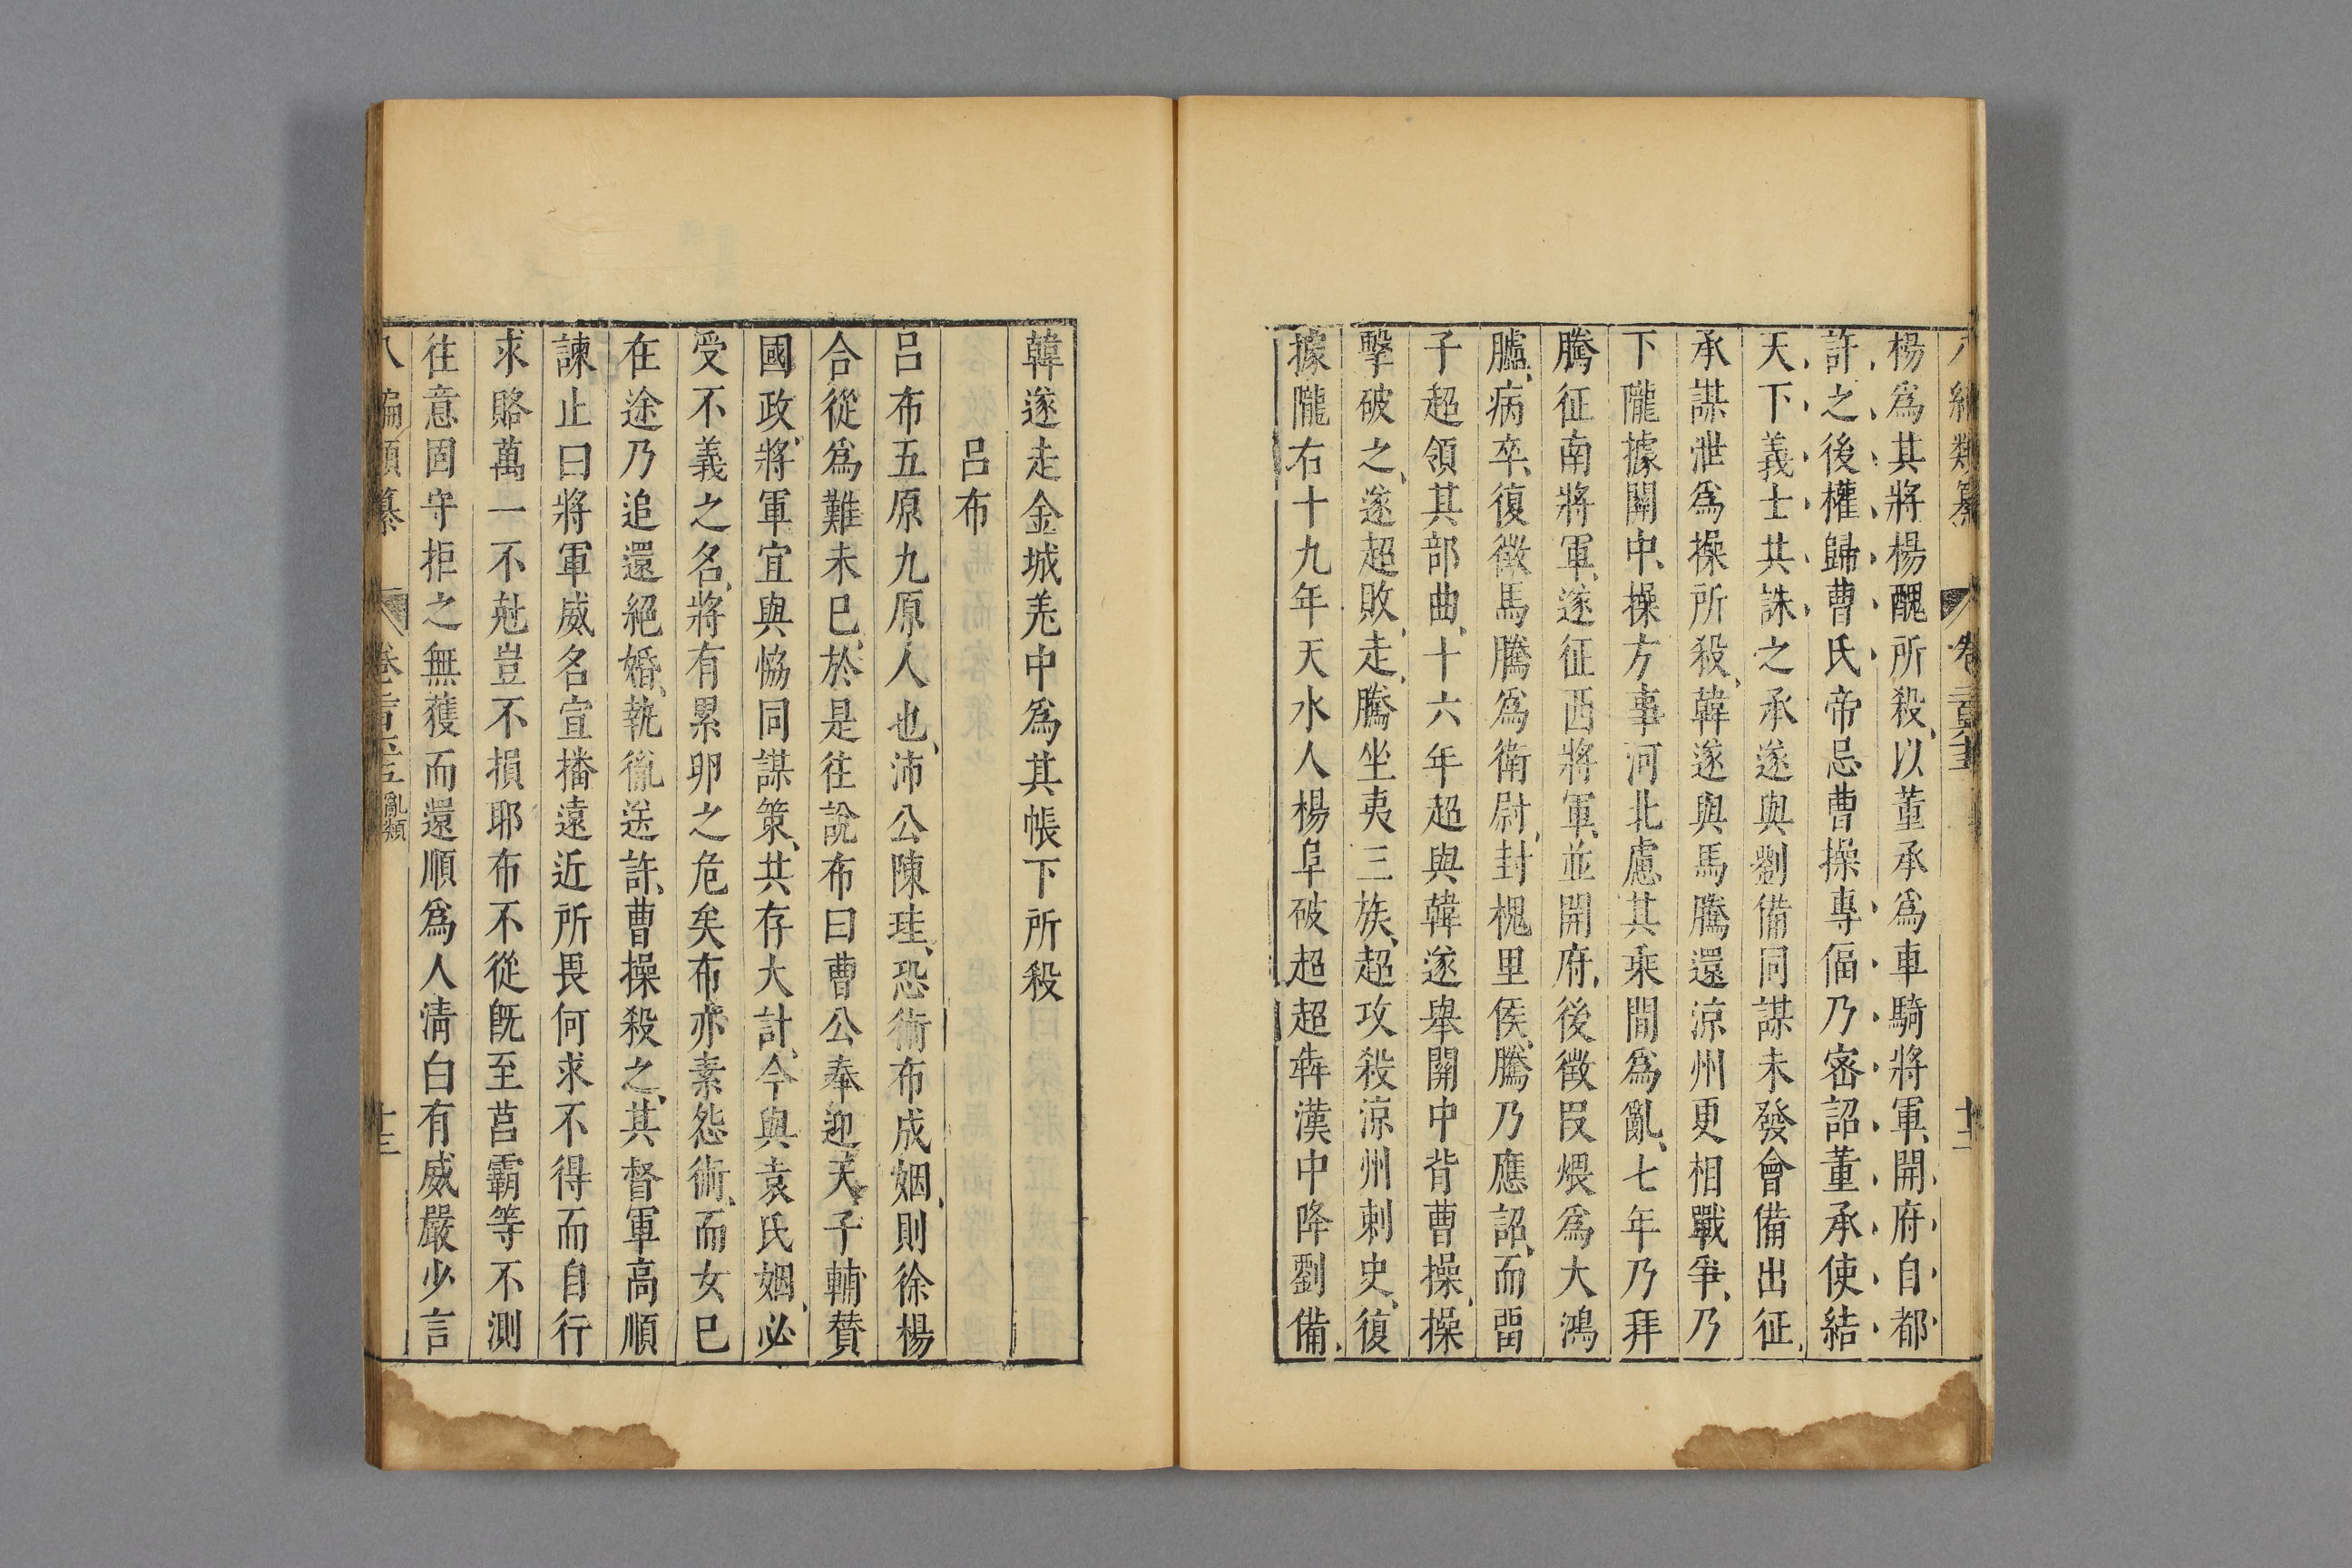 八編類纂 卷二百六十五 十二
楊爲其將楊醜所殺以董承爲車騎將軍開府自都
許之後權歸曹氏帝忌曹操專偪乃密詔董承使結
天下義士共誅之承遂與劉備同謀未發會備出征
承謀泄爲操所殺韓遂與馬騰還涼州更相戰爭乃
下隴據關中操方事河北慮其乘間爲亂七年乃拜
騰征南將軍遂征西將軍並開府後徵段煨爲大鴻
臚病卒復徵馬騰爲衛尉封槐里侯騰乃應詔而畱
子超領其部曲十六年超與韓遂舉關中背曹操操
擊破之遂超敗走騰坐夷三族超攻殺涼州刺史復
據隴右十九年天水人楊阜破超超奔漢中降劉備
韓遂走金城羌中爲其帳下所殺
呂布
呂布五原九原人也沛公陳珪恐術布成姻則徐楊
合從爲難未已於是往說布曰曹公奉迎天子輔贊
國政將軍宜與恊同謀策共存大計今與袁氏姻必
受不義之名將有累卵之危矣布亦素怨術而女已
在途乃追還絕婚執徹送許曹操殺之其督軍高順
諫止曰將軍威名宣播遠近所畏何求不得而自行
求賂萬一不尅豈不損耶布不從旣至莒霸等不測
往意固守拒之無獲而還順爲人淸白有威嚴少言
八編類纂 亂類 十三